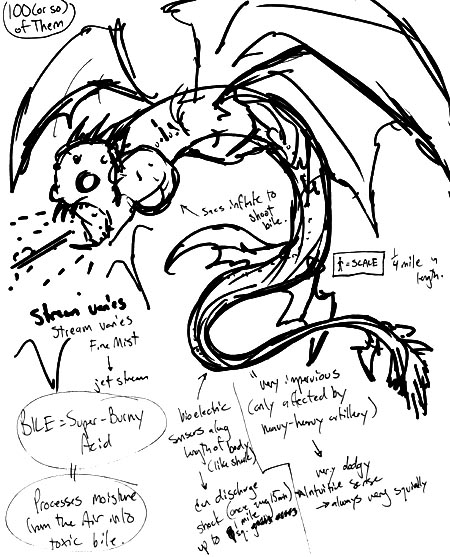 100 (or so)
of Them
Sacs inflate to
shoot
bile.
= SCALE
1/4 mile in
length.
Stream varies
Stream varies
Fine Mist
jet stream
BILE = Super-Burny
Acid
Processes moisture
from the Air into
toxic bile.
bioelectric
sensors along
length of body
(like shark)
can discharge
shock (once every 15min)
up to 1 mile
very impervious
(only affected by
heavy-heavy artillery)
very dodgy
Intuitive sense
always very squirrelly